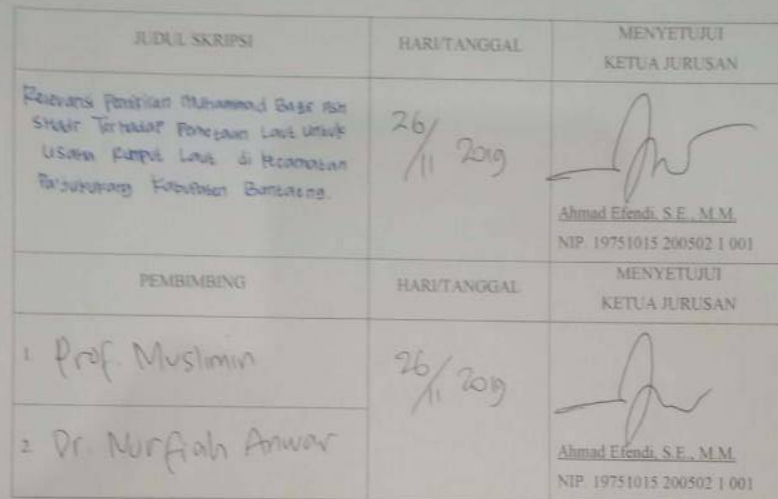 JUDUL SKRIPSI
HARI/TANGGAL
MENYETUJUI
KETUA JURUSAN
Relevansi Pemikiran Muhammad Baqir Ash
Shadr Terhadap Pemetaan Laut Untuk
Usaha Rumput Laut di Kecamatan
Pa'jukukang Kabupaten Bantaeng.
26/11 2019
Ahmad Efendi, S.E., M.M.
NIP. 19751015 200502 1 001
PEMBIMBING
HARI/TANGGAL
MENYETUJUI
KETUA JURUSAN
1. Prof. Muslimin
2. Dr. Nurfiah Anwar
26/11 2019
Ahmad Efendi, S.E., M.M.
NIP. 19751015 200502 1 001